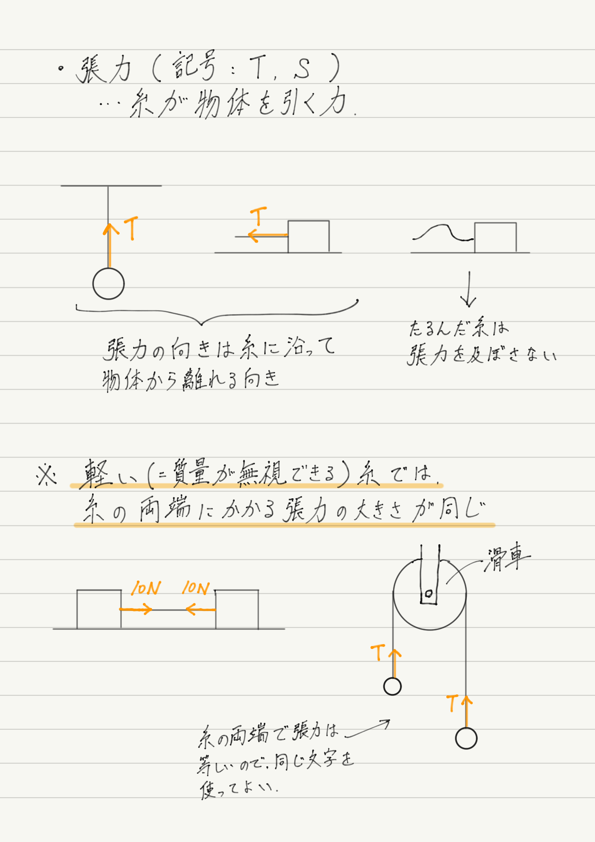 ・張力（記号：T, S）
…糸が物体を引く力.
T
T
張力の向きは糸に沿って
物体から離れる向き
たるんだ糸は
張力を及ぼさない
※ 軽い(=質量が無視できる)糸では.
糸の両端にかかる張力の大きさが同じ
10N 10N
滑車
T
T
糸の両端で張力は
等しいので.同じ文字を
使ってよい.